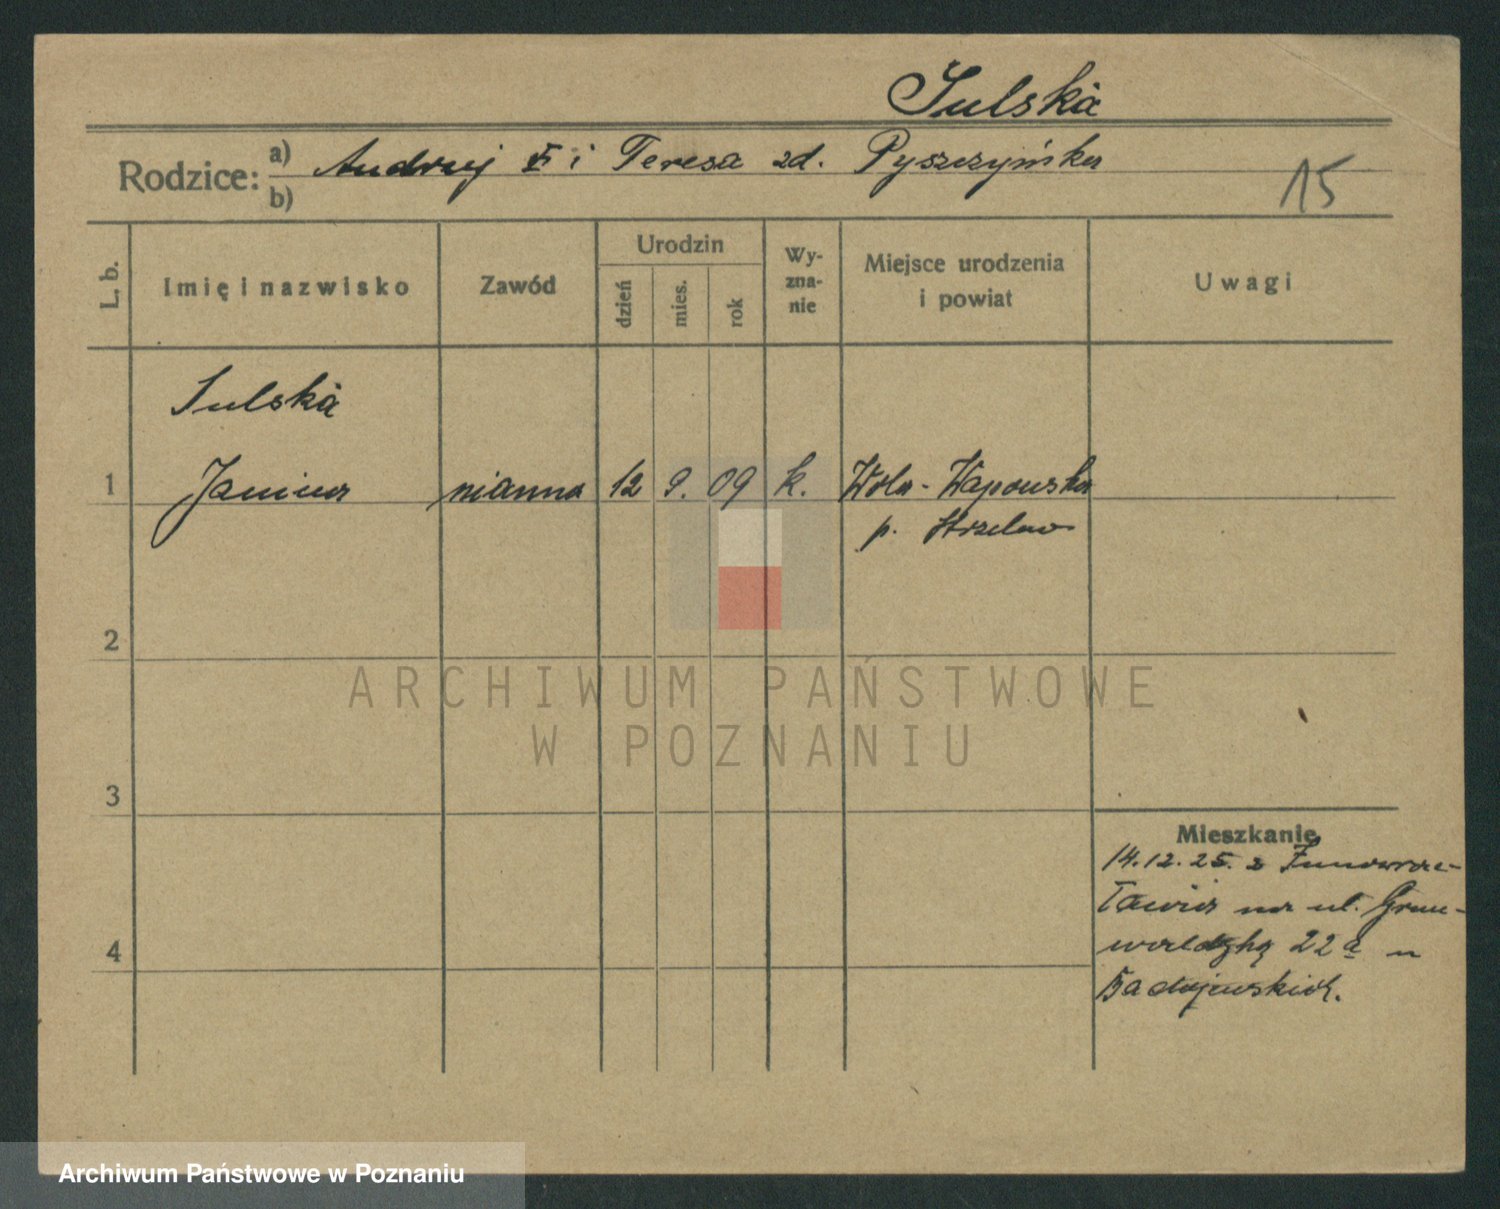 Sulska
Rodzice: a) Andrzej i Teresa zd. Pyszczyńska
b)
15
L. b. Imię i nazwisko Zawód Urodzin dzień mies. rok Wyznanie Miejsce urodzenia i powiat Uwagi
Sulska
1 Janina nianna 12 9. 09 k. Wola-Wapowska
p. Strzelno
2
3
4
Mieszkanie
14.12.25. z Inowroc-
ławia na ul. Grun-
waldzką 22a u
ARCHIWUM PAŃSTWOWE
W POZNANIU
Archiwum Państwowe w Poznaniu